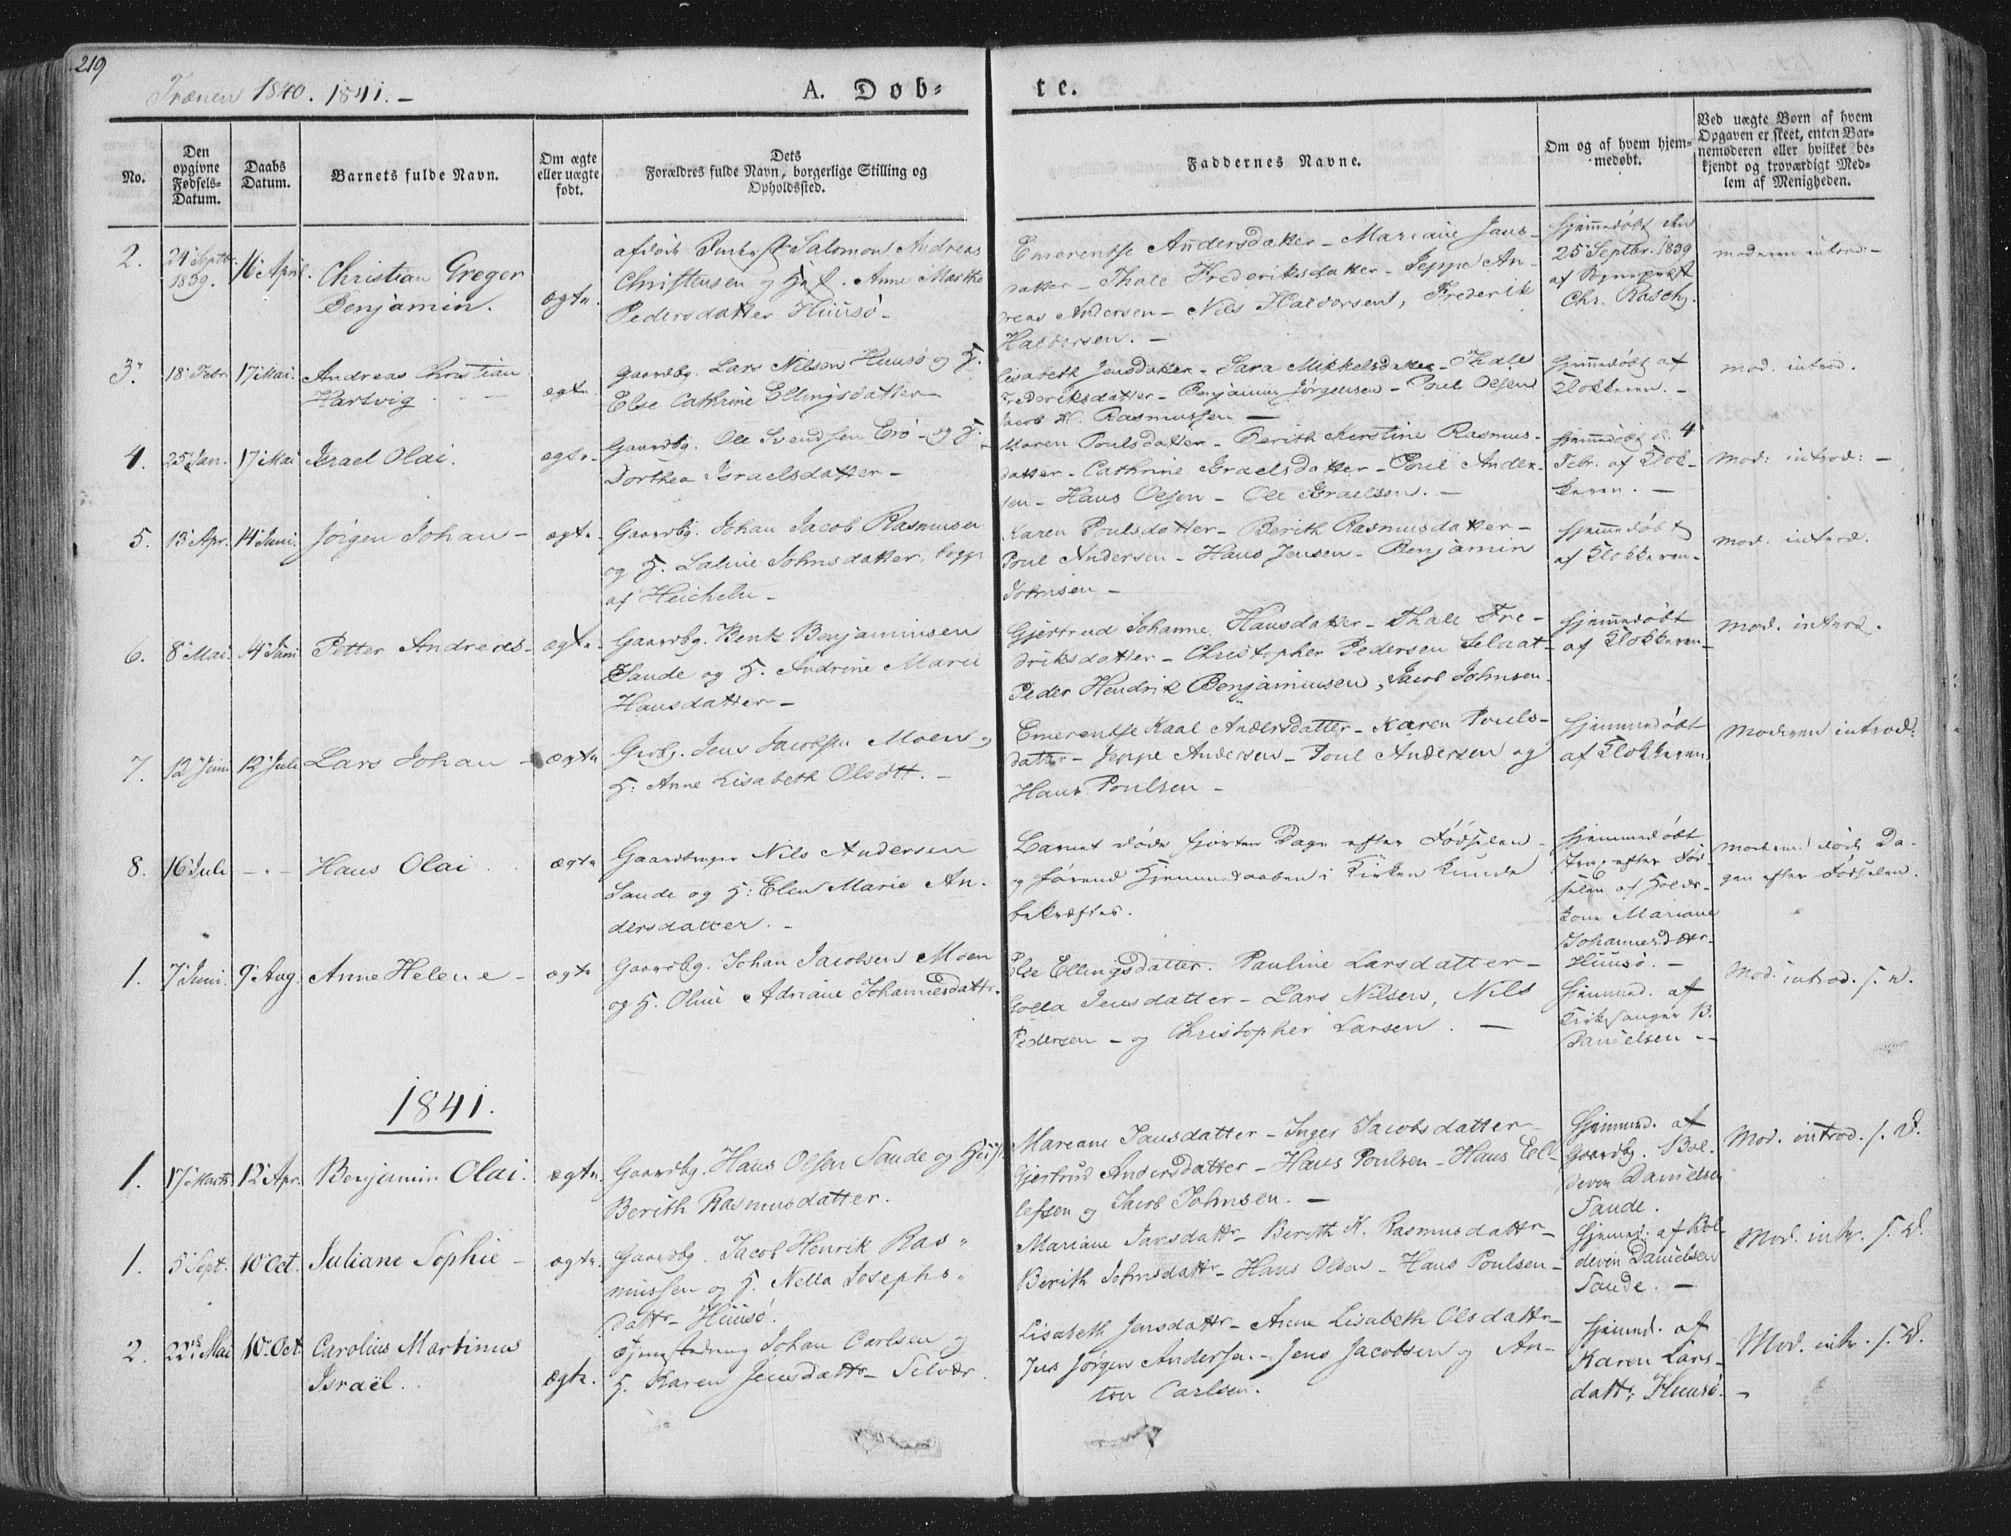 219
Trænen 1840. 1841. –
A. Døb-
te.
No.
Den opgivne Fødsels-Datum.
Daabs Datum.
Barnets fulde Navn.
Om ægte eller uægte født.
Dets Forældres fulde Navn, borgerlige Stilling og Opholdssted.
Faddernes Navne.
Om og af hvem hjem-
medøbt.
Ved uægte Børn af hvem
Opgaven er skeet, enten Bar-
nemoderen eller hvilket be-
kjendt og troværdigt Med-
lem af Menigheden.
2.
24 Septbr 1839.
16 April.
Christian Greger
Benjamin.
ægte.
Salomon Andreas
Christensen og Anne Marthe
Pedersdatter Huusø –
Emerentse Andersdatter – Mariane Jans-
datter – Thale Frederiksdatter – Jeppe An-
dreas Andersen – Nils Haldorsen, Frederik
Haldersen. –
hjemmedøbt den
25 Septbr. 1839
af
Chr. Rasch.
moderen introd: –
3.
18 Febr.
17 Mai.
Andreas Christian
Hartvig
ægte.
Gaardbg. Lars Nilsen Huusø og H.
Else Cathrine Ellingsdatter –
Lisabeth Jensdatter – Sara Mikkelsdatter – Thale
Frederiksdatter – Benjamin Jørgensen – Poul Olsen
Jacob H. Rasmussen –
hjemmedøbt af
Klokkeren. –
mod. introd.
4.
25 Jan.
17 Mai
Israel Olai.
ægte.
Gaardbg. Ole Svendsen Erø – og H.
Dorthea Israelsdatter –
Maren Poulsdatter – Berith Kerstine Rasmus-
datter – Cathrine Israelsdatter – Poul Ander-
sen – Hans Olsen – Ole Israelsen. –
hjemmedøbt d. 4
Febr. af Klok-
keren. –
mod: introd: –
5.
13 Apr.
14 Juni
Jørgen Johan –
ægte.
Gaardbg. Johan Jacob Rasmussen
og H. Laline Johnsdatter, begge
af
Karen Poulsdatter – Berith Rasmusdatter –
Poul Andersen – Hans Jensen – Benjamin
Johnsen –
hjemmedøbt
af Klokkeren –
mod. introd.
6.
8 Mai.
14 Juni
Petter Andreas –
ægte.
Gaardbg. Benk Benjaminsen
Sande og H. Andrine Marie
Hansdatter –
Gjertrud Johanne Hansdatter – Thale Fre-
driksdatter – Christopher Pedersen Selaat –
Peder Hendrik Benjaminsen, Jacob Johnsen.
hjemmedøbt
af Klokkeren –
mod. introd.
7.
12 Juni
12 Juli
Lars Johan –
ægte
Grbg. Jens Jacobsen Moen og
H: Anne Lisabeth Olsdtt. –
Emerentse Kaal Andersdatter – Karen Pouls-
datter – Jeppe Andersen – Poul Andersen og
Hans Poulsen –
hjemmedøbt
af Klokkeren
moderen introd:
8.
16 Juli
– . –
Hans Olai
ægte
Gaardbruger Nils Andersen
Sande og H: Elen Marie An-
dersdatter. –
Barnet døde fjorten Dage efter Fødselen –
og førend Hjemmedaaben i Kirken kunde
bekræftes.
hjemmedøbt
strax efter Fød-
selen af Holde-
kone Mariane
Johannesdattr.
Huusø. –
moderen døde Da-
gen efter Fødselen.
1.
7 Juni.
9 Aug.
Anne Helene –
ægte
Gaardbg. Johan Jacobsen Moen
og H. Oline Adriane Johannesdattr.
Else Ellingsdatter. Pauline Larsdatter –
Golla Jensdatter – Lars Nilsen, Nils
Pedersen – og Christopher Larsen. –
Hjemmed. af
Kirkesanger B.
Danielsen –
Mod. introd. s. d.
1841.
1.
17 Marts
12 Apr.
Benjamin Olai.
ægte.
Gaardbg. Hans Olsen Sande og Hust.
Berith Rasmusdatter.
Mariane Jansdatter – Inger Jacobsdatter –
Gjertrud Andersdatter – Hans Poulsen – Hans Ell-
lefsen og Jacob Johnsen. –
Hjemmed. af
Gaardbg. Bal-
deven Danielsen
Sande.
Mod. introd. s. D.
1.
5 Sept.
10 Oct.
Juliane Sophie –
ægte.
Gaardbg. Jacob Henrik Ras-
mussen og H. Nella Josephs-
dattr – Huusø.
Mariane Jansdattr – Berith K. Rasmusdattr –
Berith Johnsdattr – Hans Olsen – Hans Poulsen –
Hjemmed: af Bal-
deven Danielsen
Sande. –
Mod. intr. s. D.
2.
22de Mai
10 Oct.
Carolius Martinus
Israël.
ægte.
Johan Carlsen og
H. Karen Jensdattr – Selvær.
Lisabeth Jensdattr – Anne Lisabeth Olsdattr –
Jens Jørgen Andersen – Jens Jacobsen og An-
ton Carlsen.
Hjemmed. af
Karen Lars-
dattr, Huusø. –
Mod. intr. s. D.